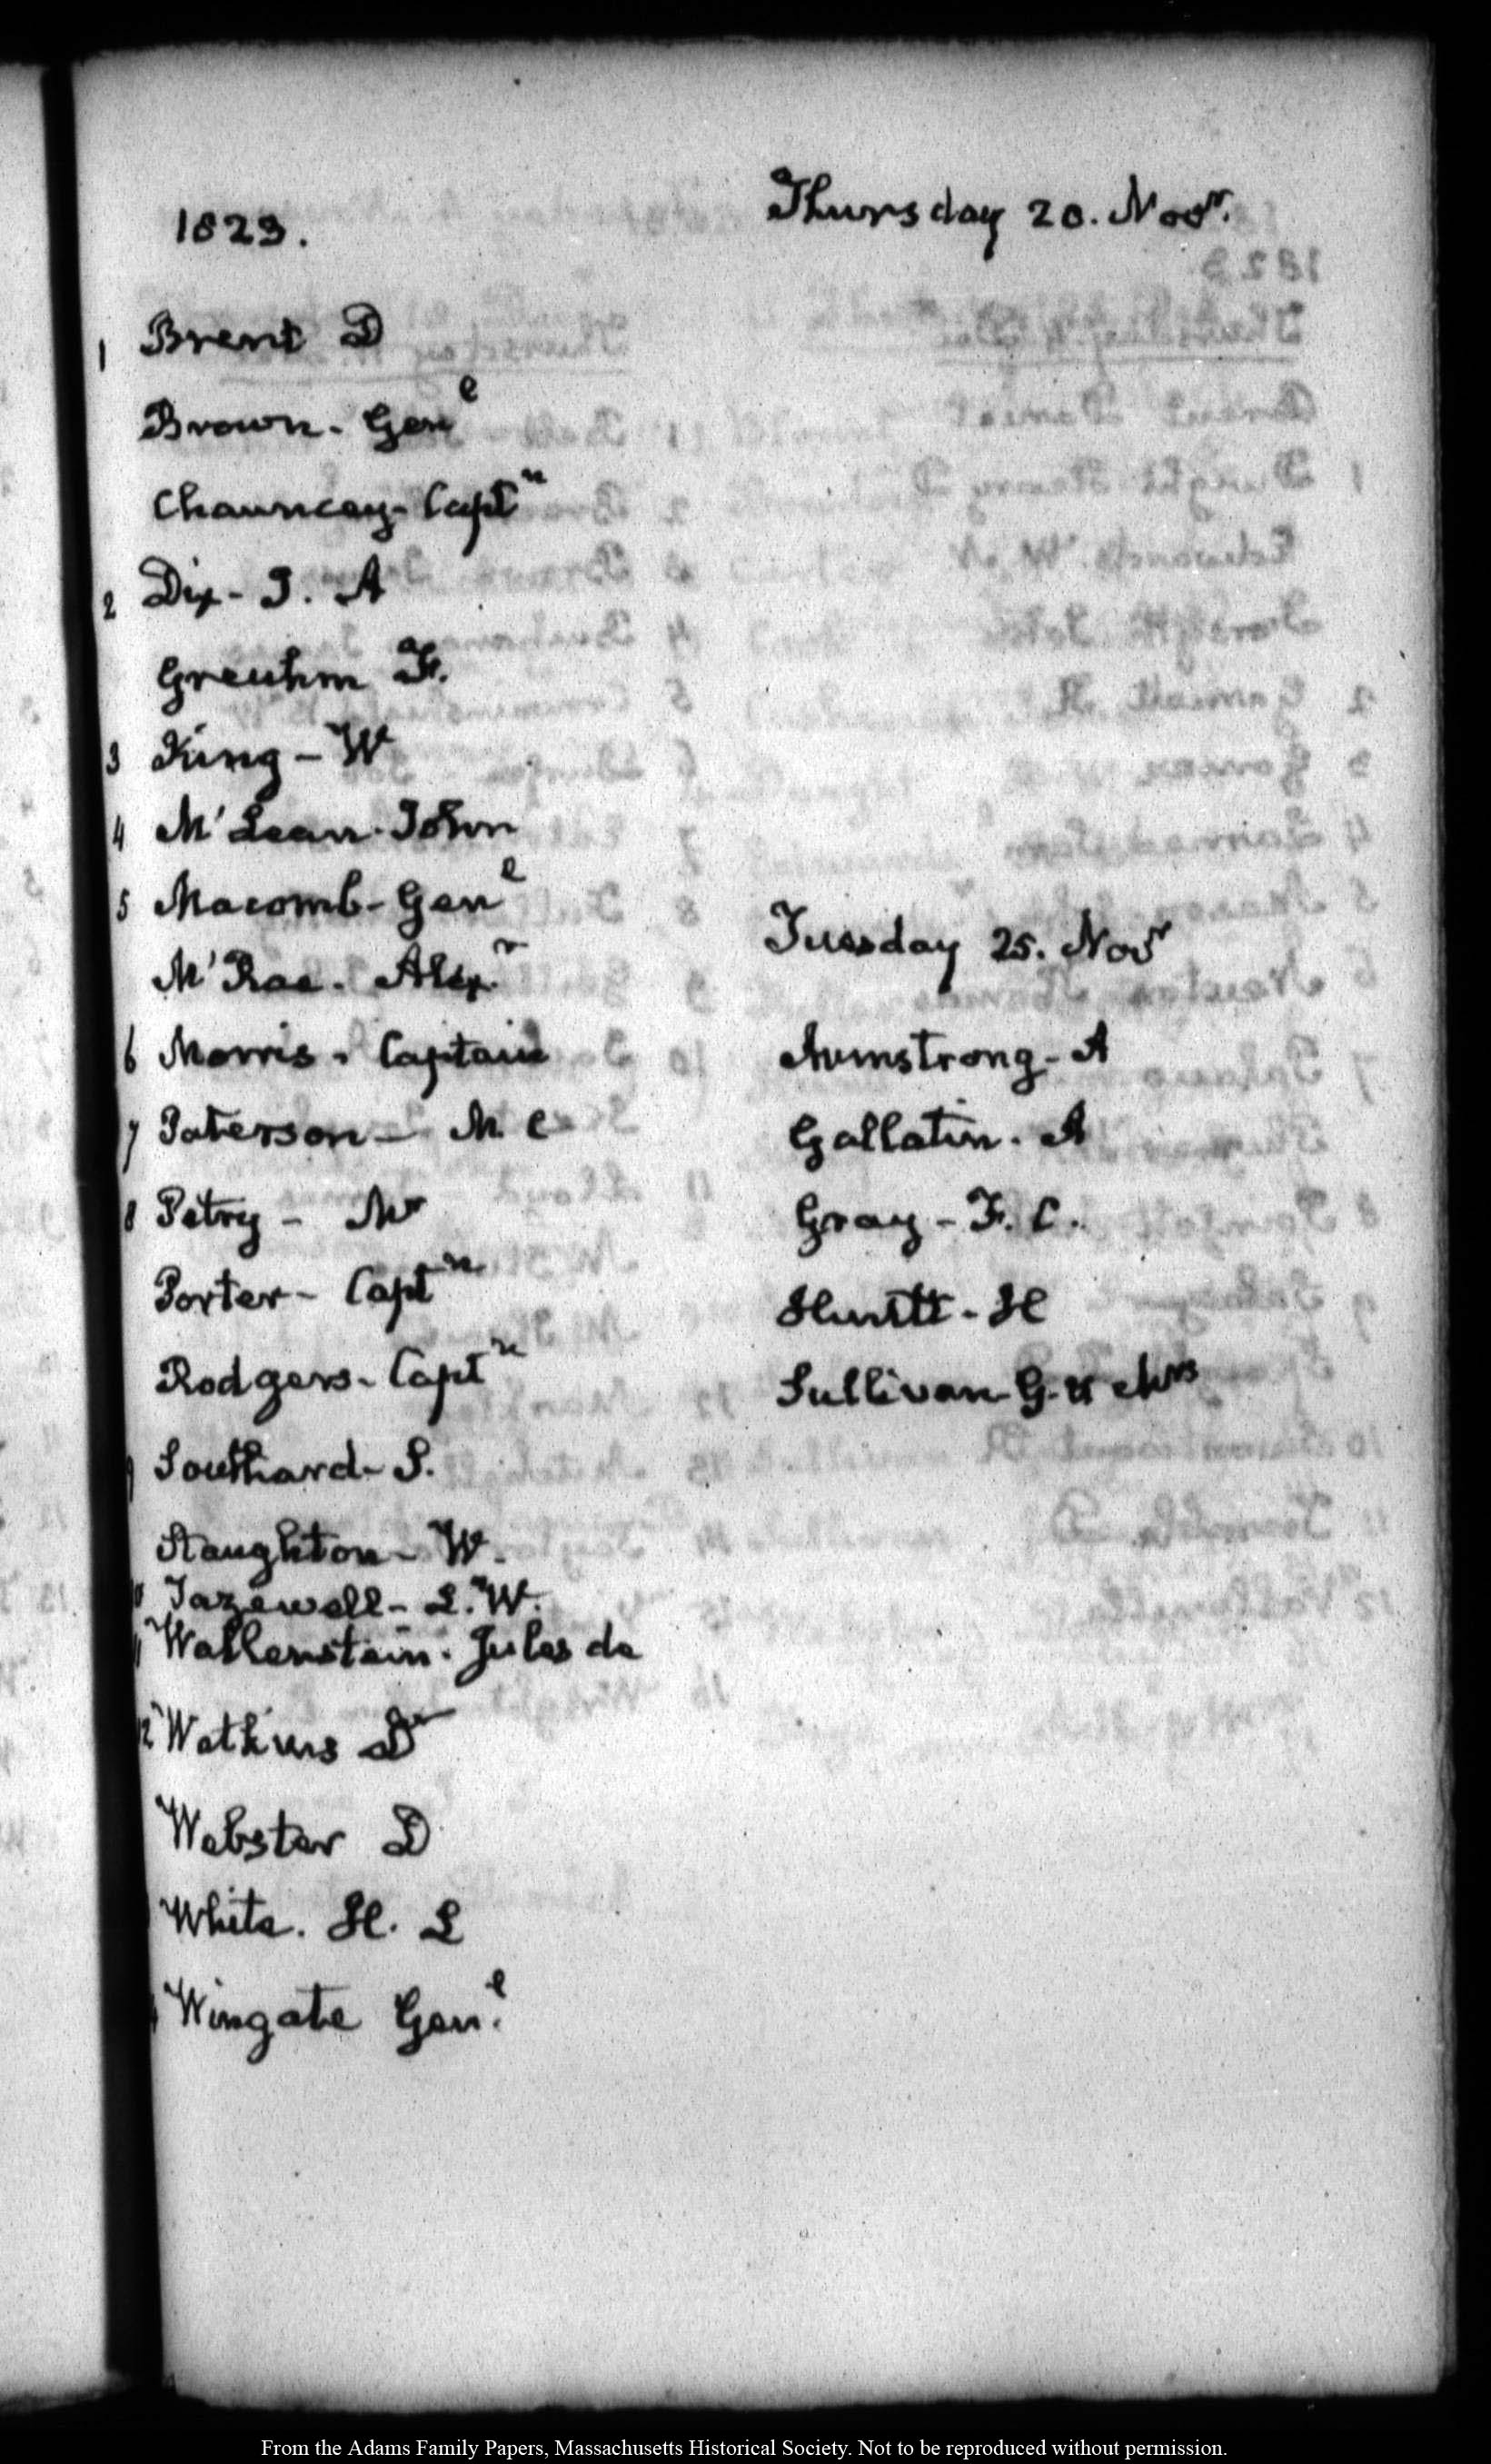 1823.
Thursday 20. Novr.
1 Brent D
Brown - Genl
Chauncey - Captn
2 Dix - J. A
Greuhm F.
3 King - W
4 M'Lean - John
5 Macomb - Genl
M'Rae - Alexr
6 Morris - Captain
7 Paterson - M. C
8 Petry - Mr
Porter - Captn
Rodgers - Captn
9 Southard - S.
Staughton - W.
10 Tazewell - L. W.
11 Wallenstein - Jules de
12 Watkins Dr
Webster D
White. H. L
Wingate Genl.
Tuesday 25. Novr
Armstrong - A
Gallatin - A
Gray - F. C.
Huntt - H
Sullivan - G. & Mrs
From the Adams Family Papers, Massachusetts Historical Society. Not to be reproduced without permission.